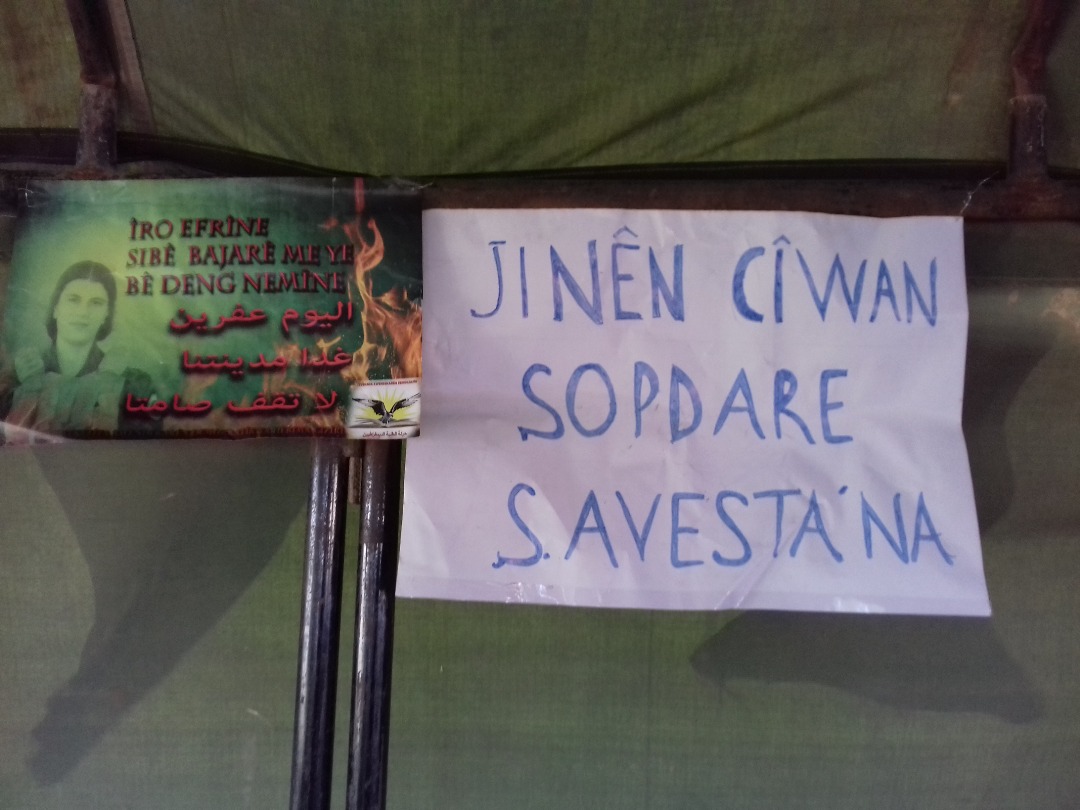 ÎRO EFRÎNE
SIBÊ BAJARÊ ME YE
BÊ DENG NEMÎNE
اليوم عفرين
غدا مدينتنا
لا تقف صامتا
JINÊN CÎWAN
SOPDARE
S.AVESTA'NA